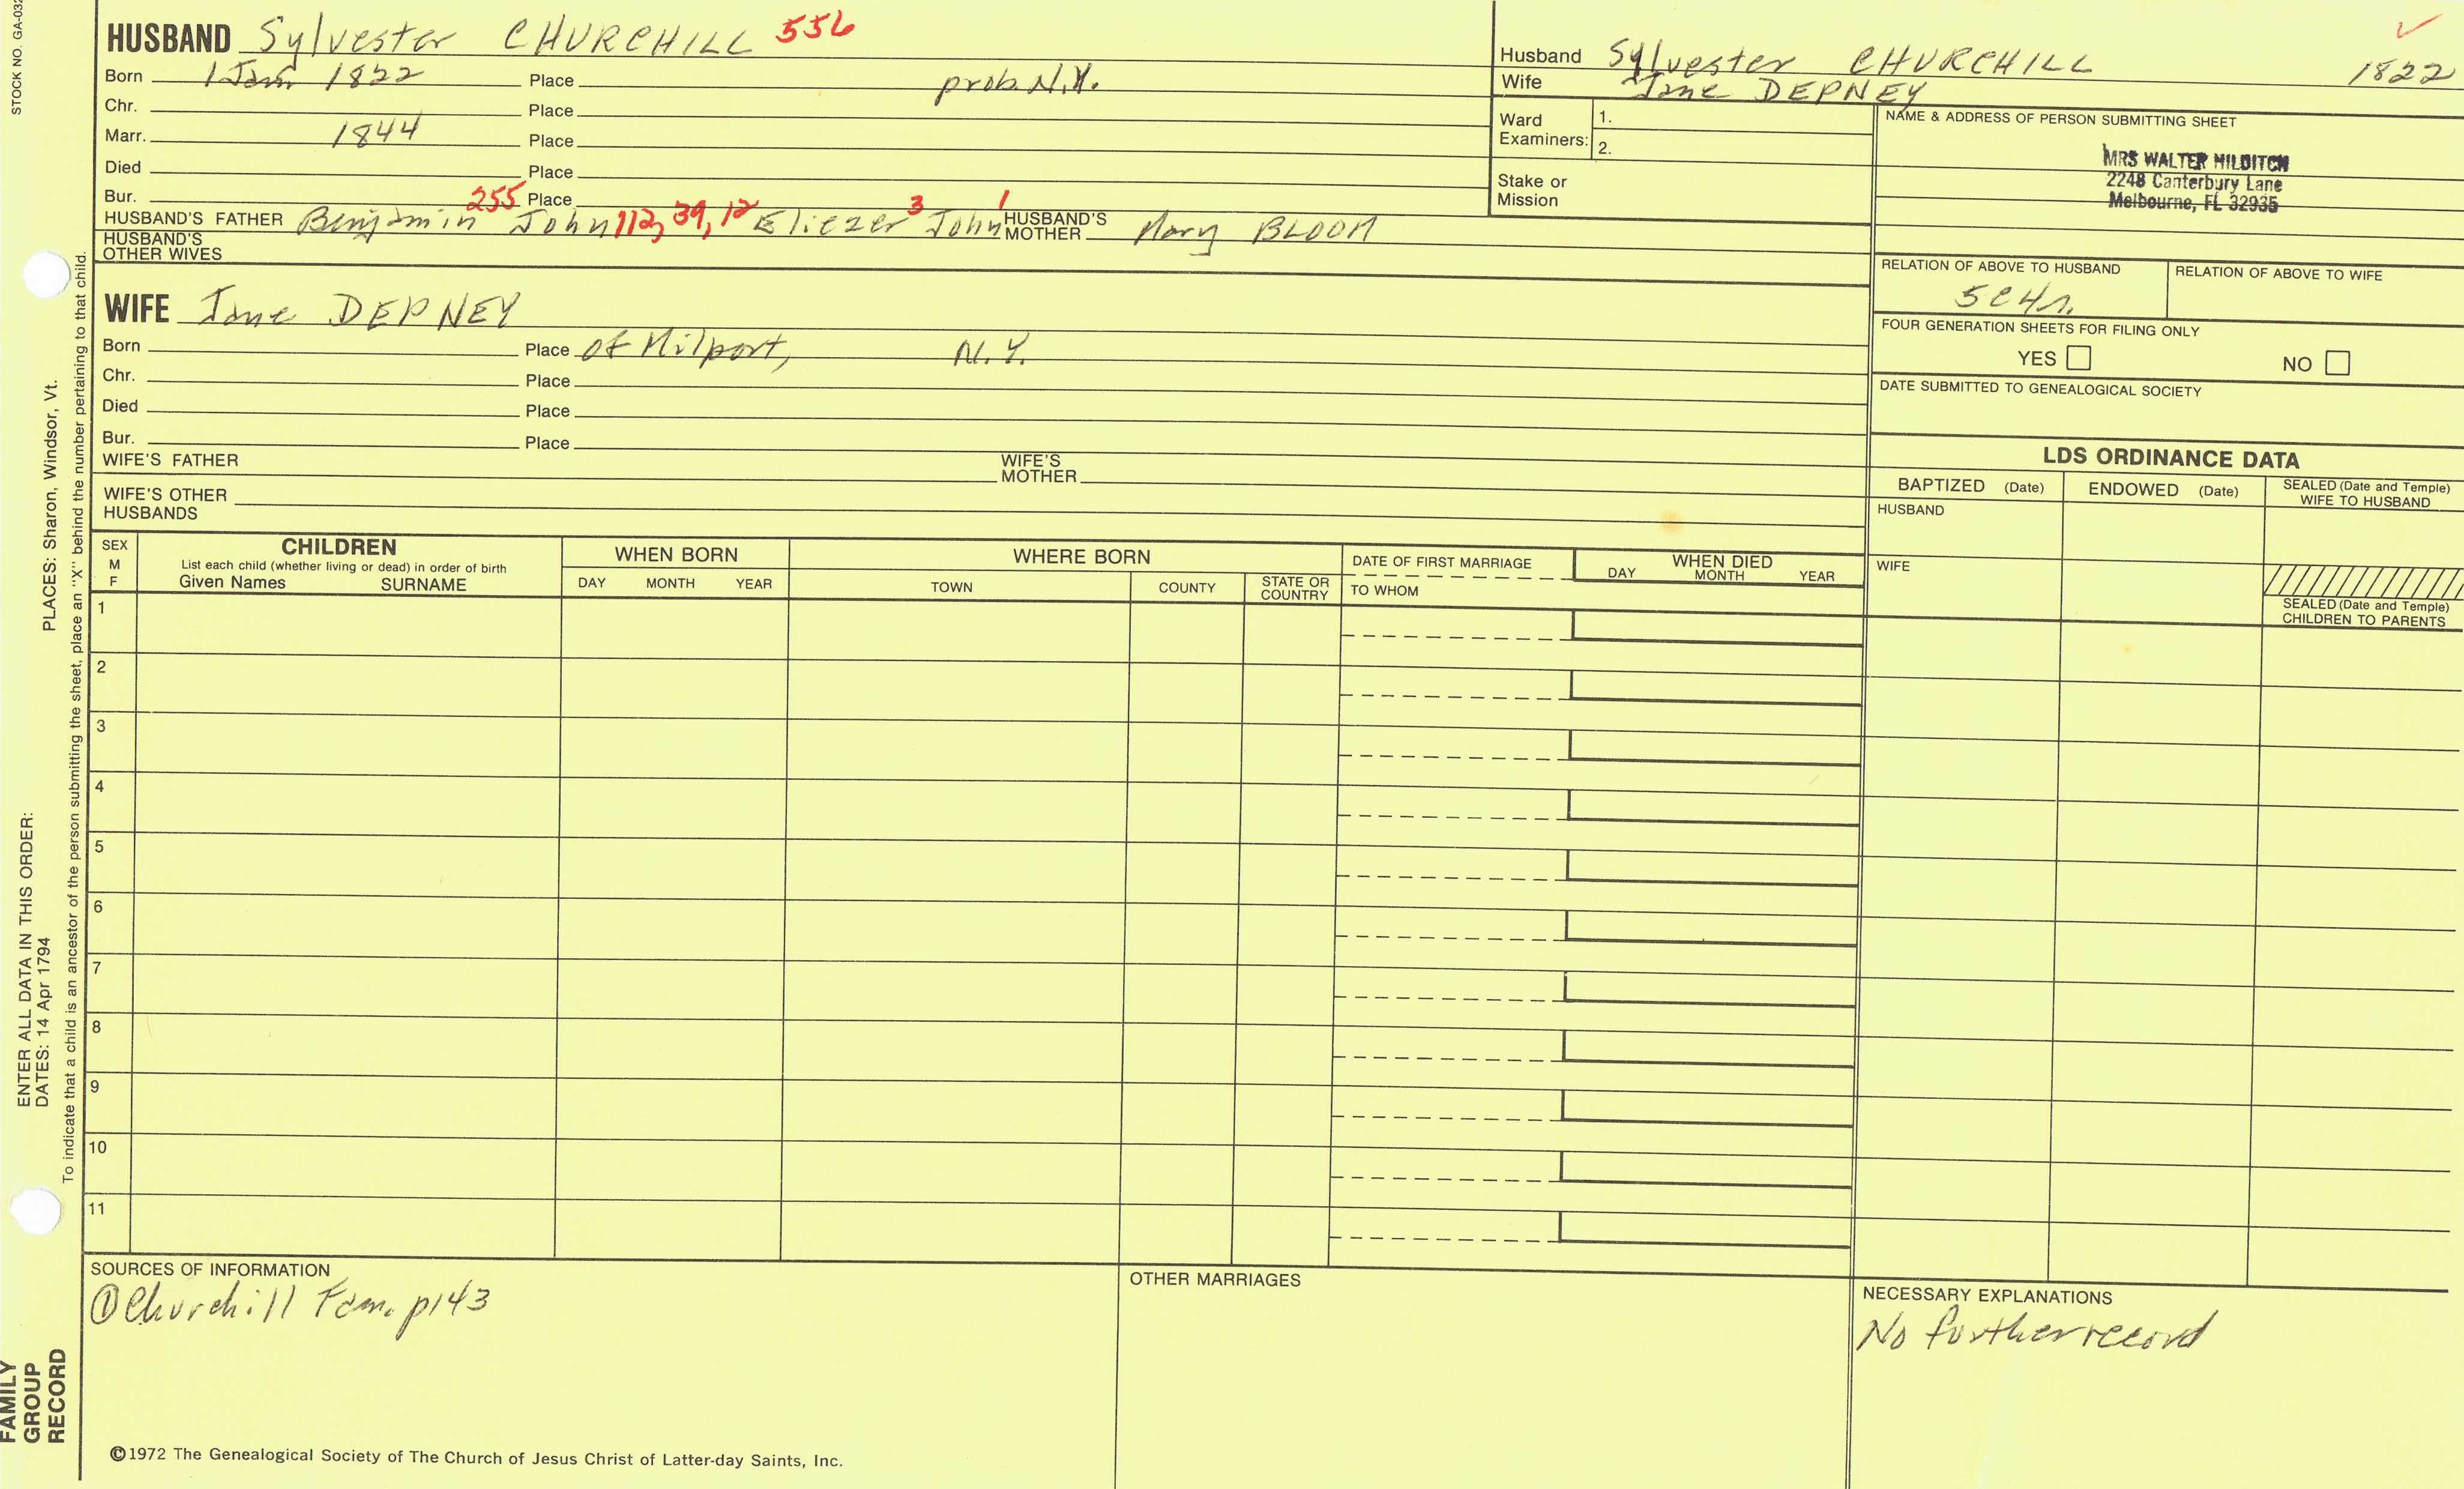 STOCK NO. GA-032
HUSBAND Sylvester CHURCHILL 556
Born 1 Jan 1822 Place prob. N.Y.
Chr. Place
Marr. 1844 Place
Died Place
Bur. Place
HUSBAND'S FATHER Benjamin 255 John 112, 39, 12 Eliezer 3 John 1 HUSBAND'S MOTHER Mary BLOOM
HUSBAND'S OTHER WIVES
WIFE Jane DEPNEY
Born Place of Milport, N.Y.
Chr. Place
Died Place
Bur. Place
WIFE'S FATHER WIFE'S MOTHER
WIFE'S OTHER HUSBANDS
Husband Sylvester CHURCHILL 1822
Wife Jane DEPNEY
Ward Examiners: 1. 2.
Stake or Mission
NAME & ADDRESS OF PERSON SUBMITTING SHEET
MRS WALTER HILDITCH
2248 Canterbury Lane
Melbourne, FL 32935
RELATION OF ABOVE TO HUSBAND RELATION OF ABOVE TO WIFE
5C4r.
FOUR GENERATION SHEETS FOR FILING ONLY
YES NO
DATE SUBMITTED TO GENEALOGICAL SOCIETY
LDS ORDINANCE DATA
BAPTIZED (Date) ENDOWED (Date) SEALED (Date and Temple) WIFE TO HUSBAND
HUSBAND
WIFE
SEALED (Date and Temple) CHILDREN TO PARENTS
SEX M F CHILDREN WHEN BORN WHERE BORN DATE OF FIRST MARRIAGE WHEN DIED
List each child (whether living or dead) in order of birth
Given Names SURNAME DAY MONTH YEAR TOWN COUNTY STATE OR COUNTRY TO WHOM DAY MONTH YEAR
1
2
3
4
5
6
7
8
9
10
11
SOURCES OF INFORMATION
① Churchill Fam. p143
OTHER MARRIAGES
NECESSARY EXPLANATIONS
No further record
©1972 The Genealogical Society of The Church of Jesus Christ of Latter-day Saints, Inc.
FAMILY GROUP RECORD
ENTER ALL DATA IN THIS ORDER:
DATES: 14 Apr 1794 PLACES: Sharon, Windsor, Vt.
To indicate that a child is an ancestor of the person submitting the sheet, place an "X" behind the number pertaining to that child.